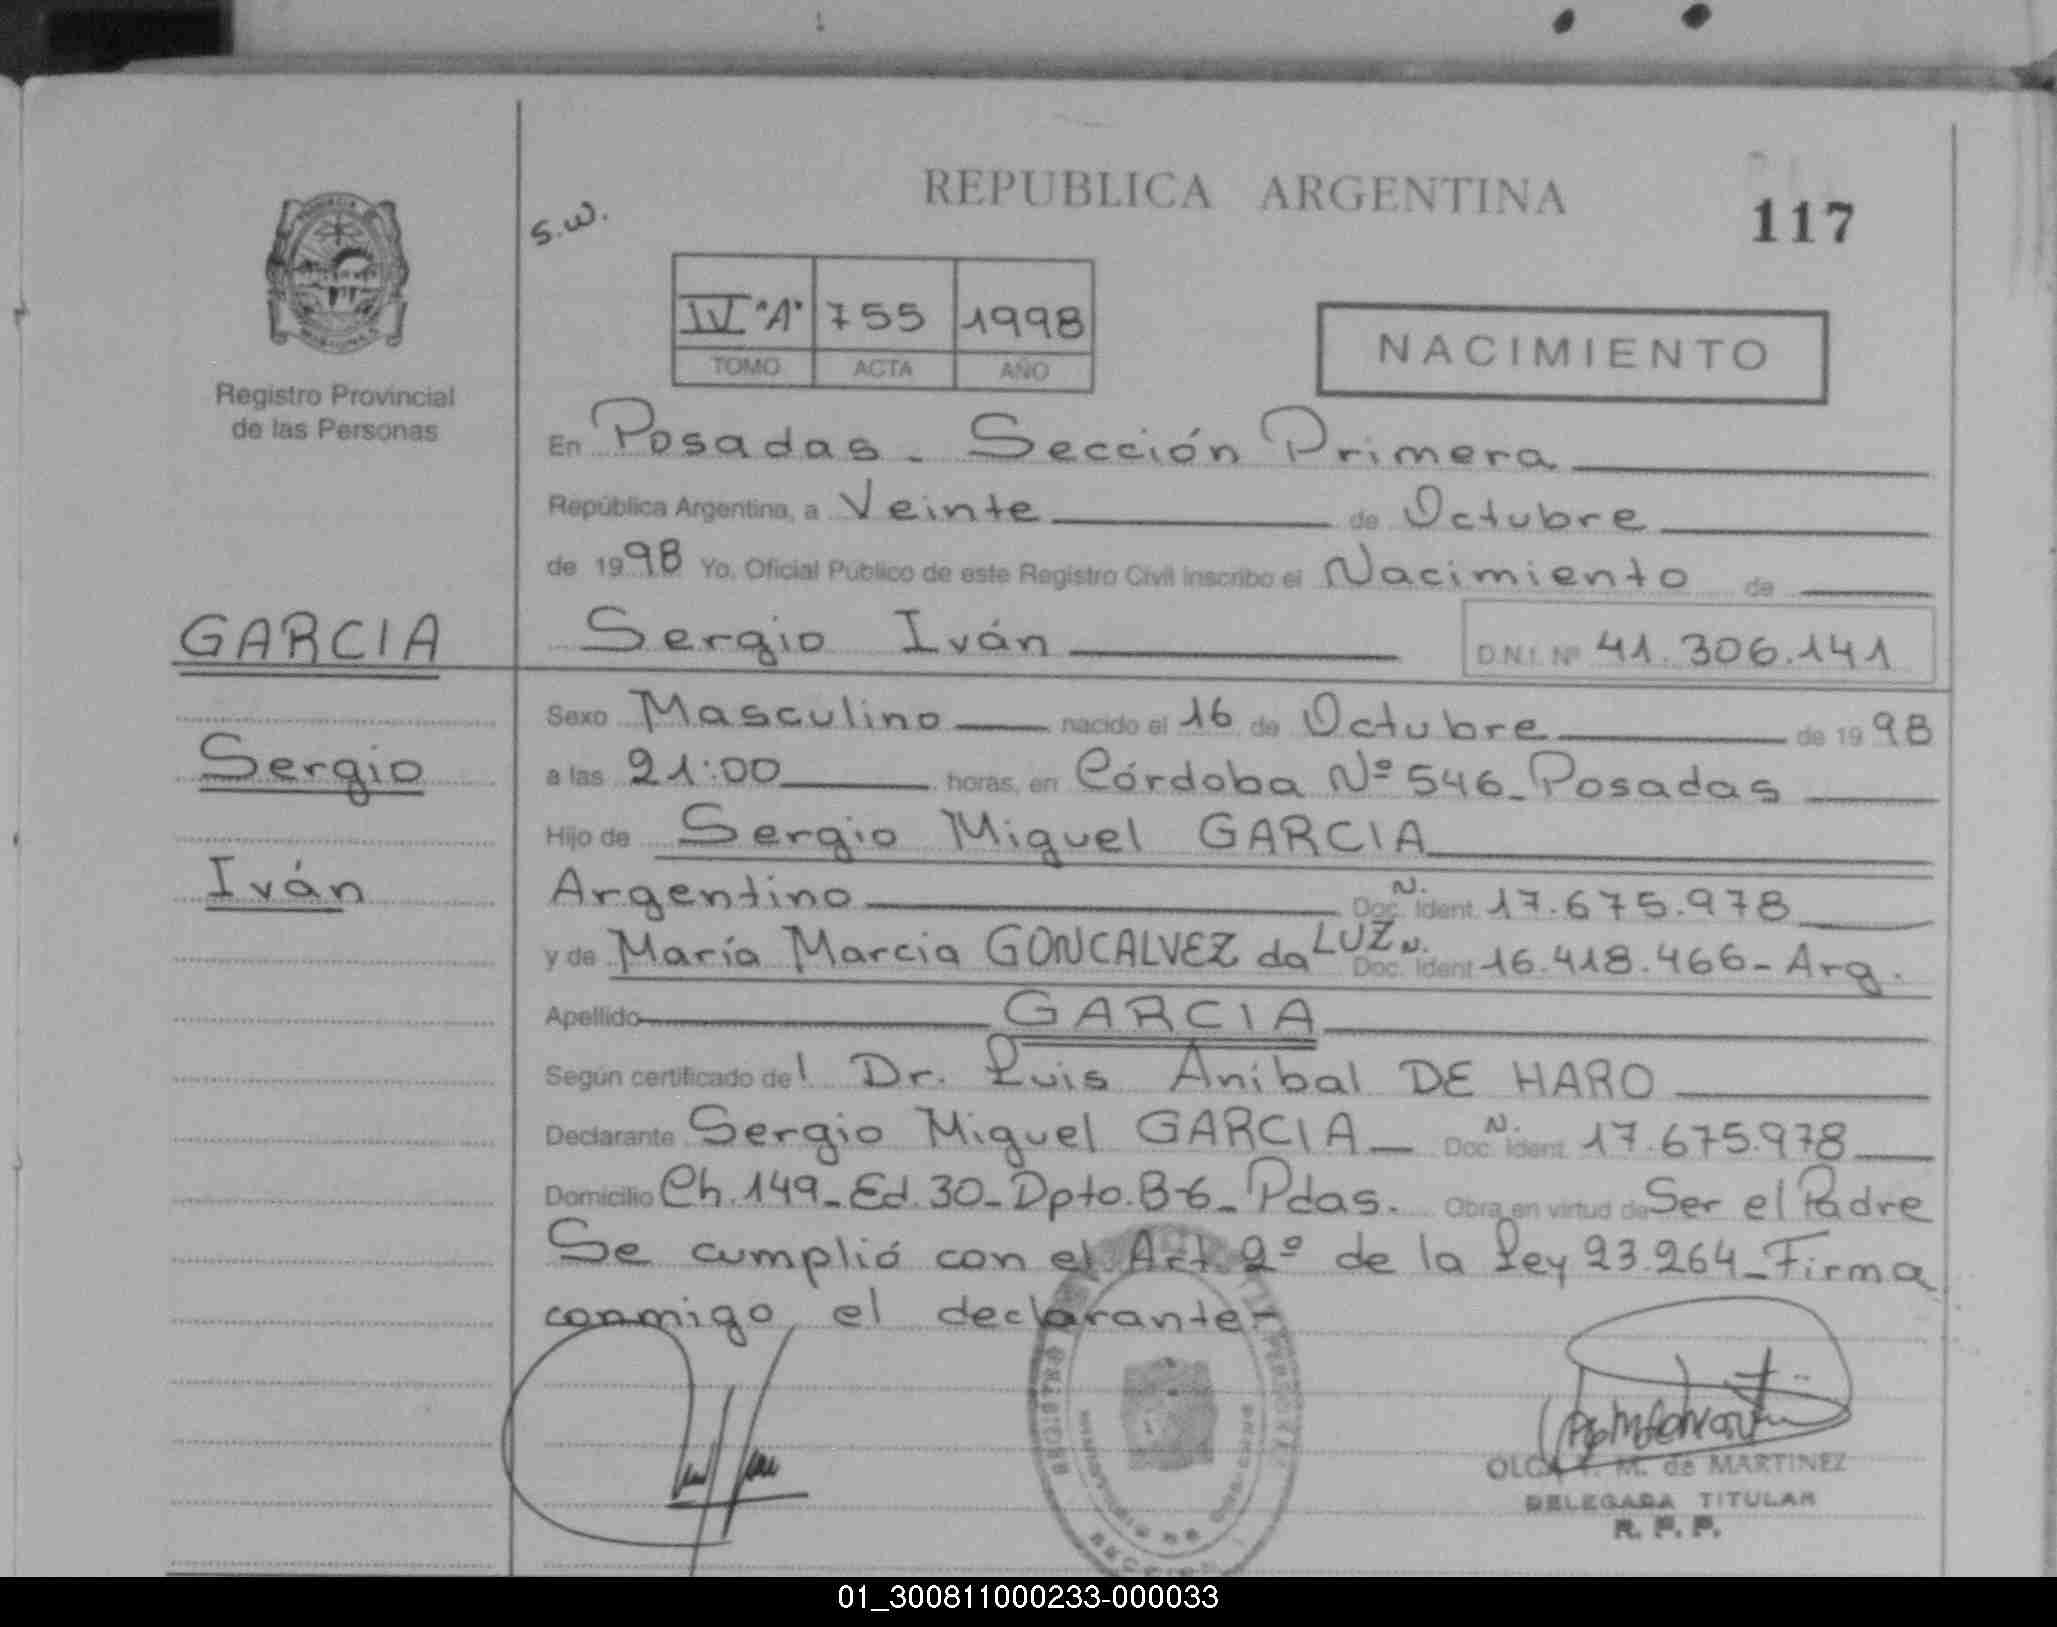 REPUBLICA ARGENTINA
117
s.w.
IV "A" 755 1998
TOMO ACTA AÑO
NACIMIENTO
Registro Provincial
de las Personas
En Posadas - Sección Primera
República Argentina, a Veinte de Octubre
de 1998 Yo, Oficial Público de este Registro Civil inscribo el Nacimiento de
GARCIA
Sergio Iván
D.N.I. Nº 41.306.141
Sexo Masculino nacido el 16 de Octubre de 1998
Sergio
a las 21:00 horas, en Córdoba Nº 546 - Posadas
Hijo de Sergio Miguel GARCIA
Iván
Argentino Doc. N. Ident. 17.675.978
y de María Marcia GONCALVEZ da LUZ Doc. N. Ident. 16.418.466 - Arg.
Apellido GARCIA
Según certificado del Dr. Luis Aníbal DE HARO
Declarante Sergio Miguel GARCIA Doc. N. Ident. 17.675.978
Domicilio Ch. 149 - Ed. 30 - Dpto. B-6 - Pdas. Obra en virtud de Ser el Padre
Se cumplió con el Art. 2º de la Ley 23.264 - Firma
conmigo el declarante -
M. de MARTINEZ
DELEGADA TITULAR
R. P. P.
01_300811000233-000033